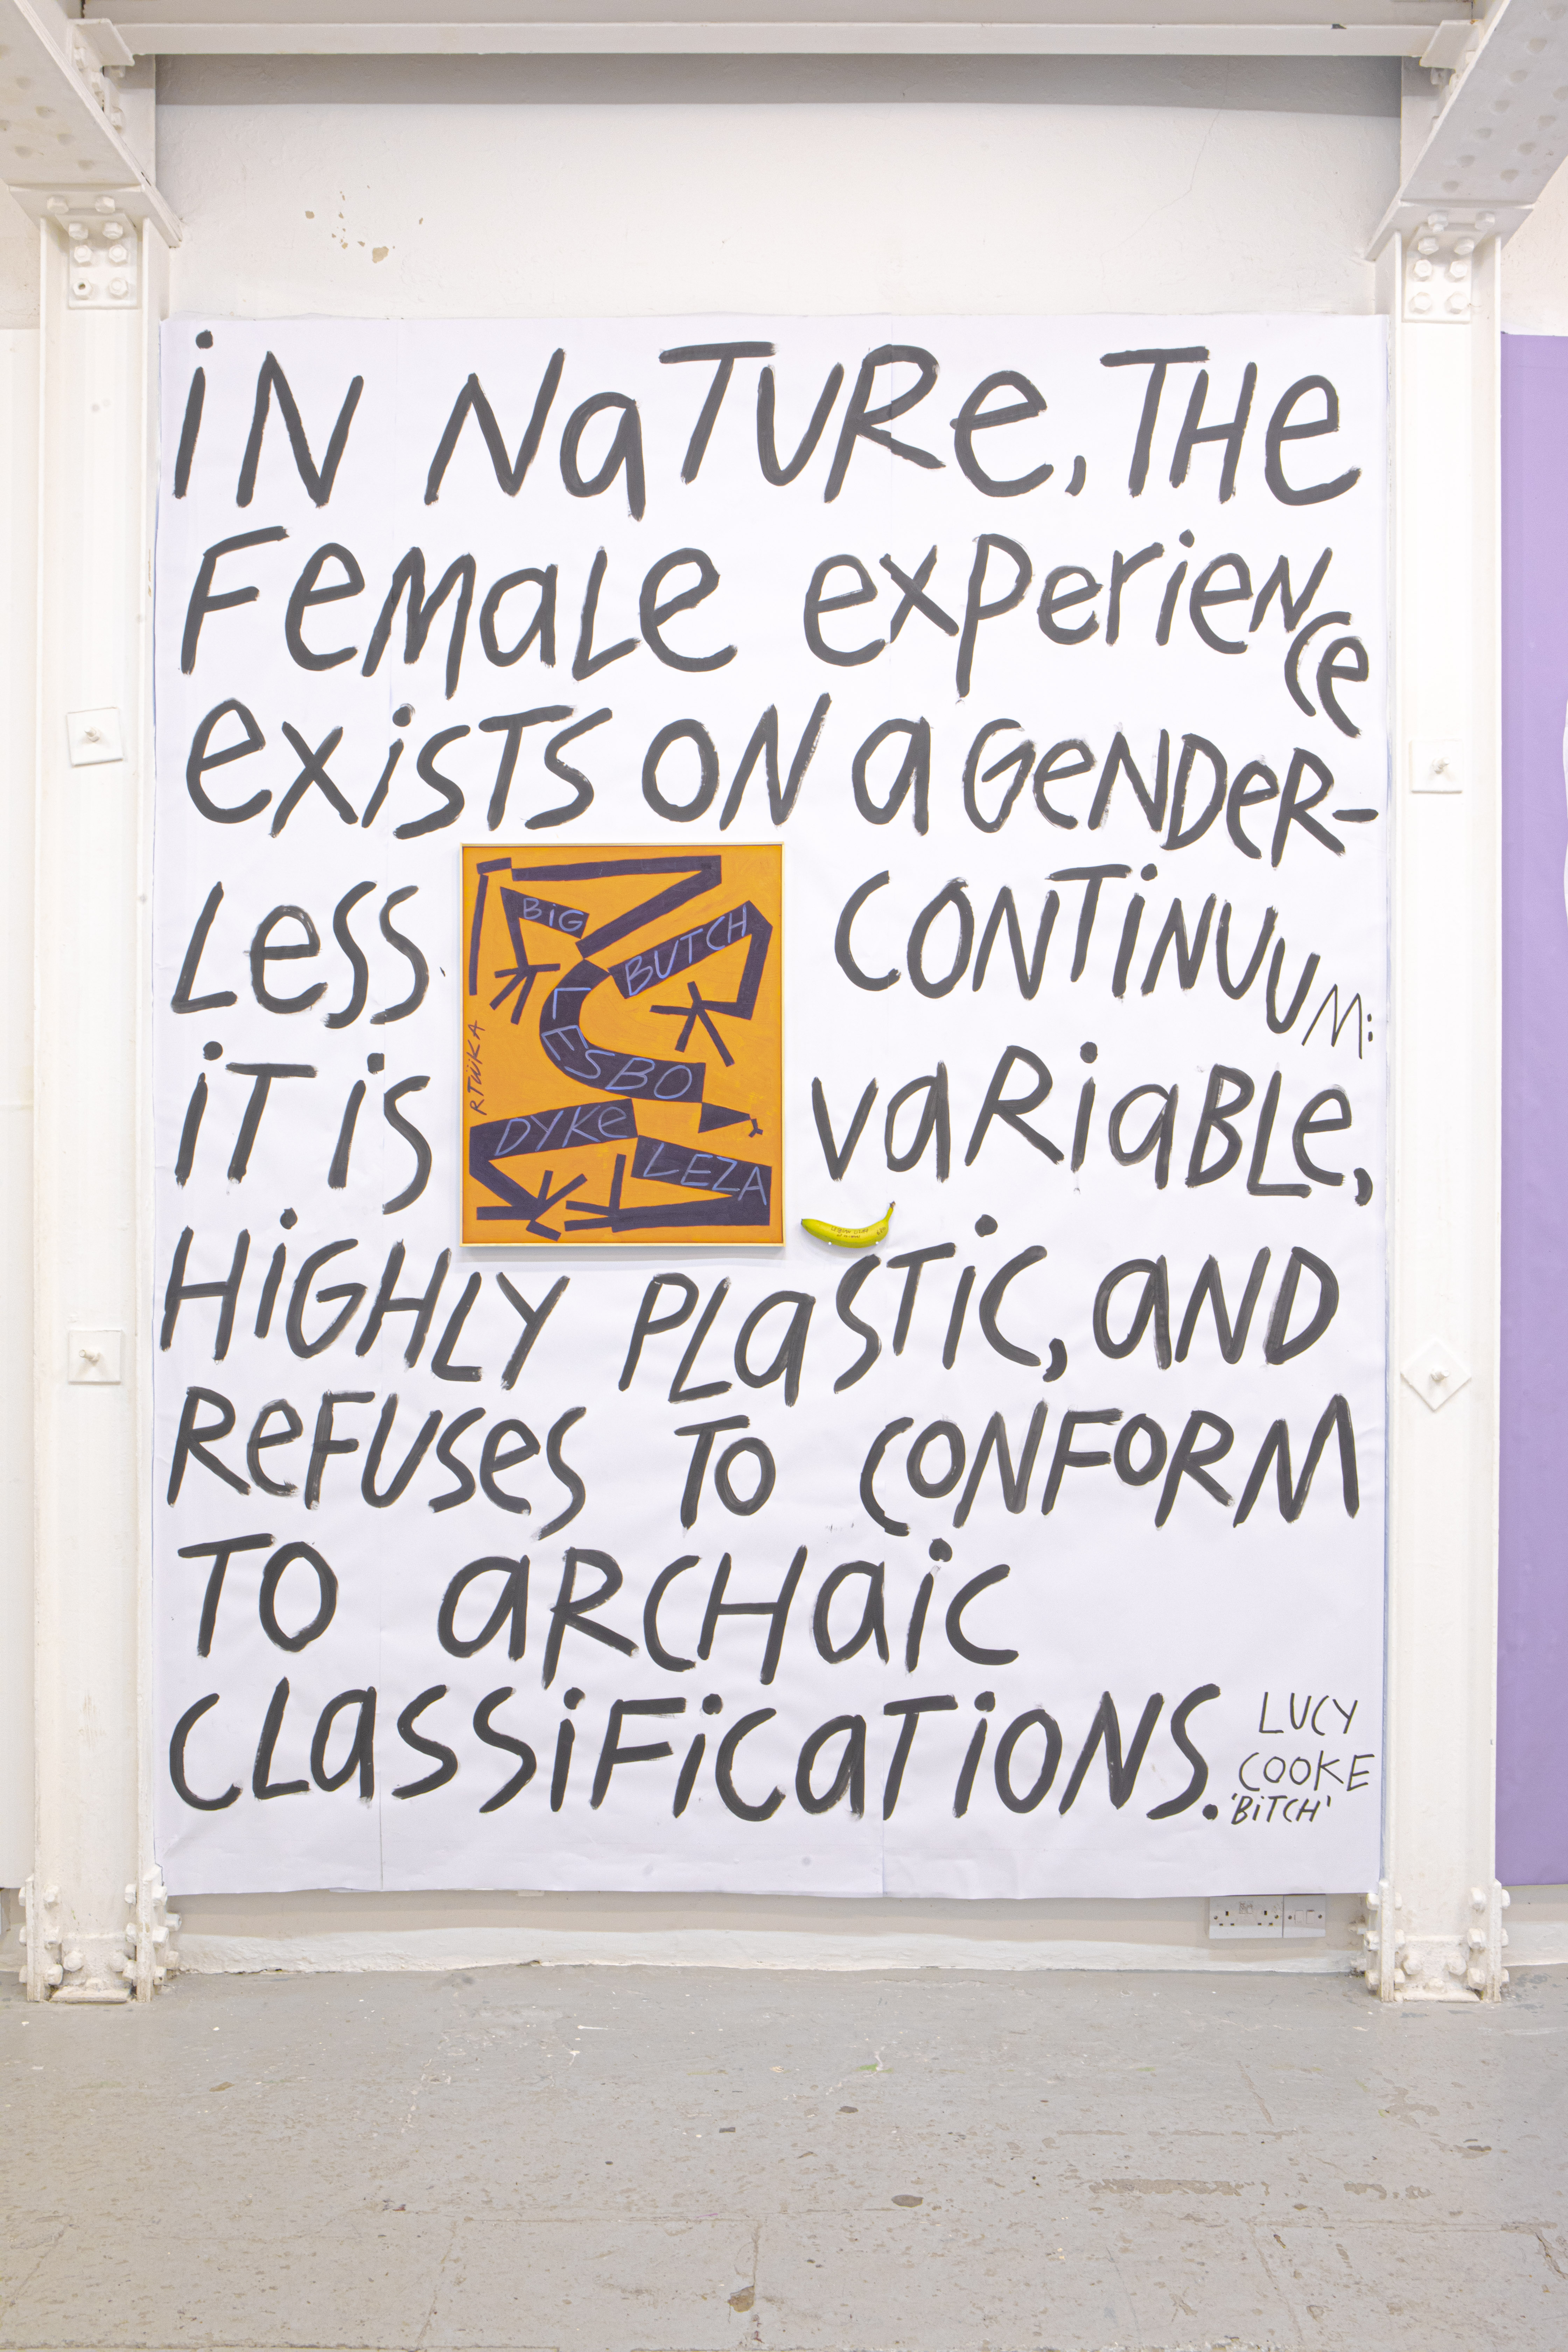 iN NaTURe, THe
FeMaLe experieNce
exiSTS ON a GeNDeR-
LeSS CONTiNUUM:
iT iS VaRiaBLe,
HiGHLY PLaSTiC, aND
ReFUSeS TO CONFORM
TO aRCHaiC
CLaSSiFiCaTiONS.
LUCY
COOKE
'BiTCH'
BiG
BUTCH
LESBO
DYKe
LEZA
RTiiKA